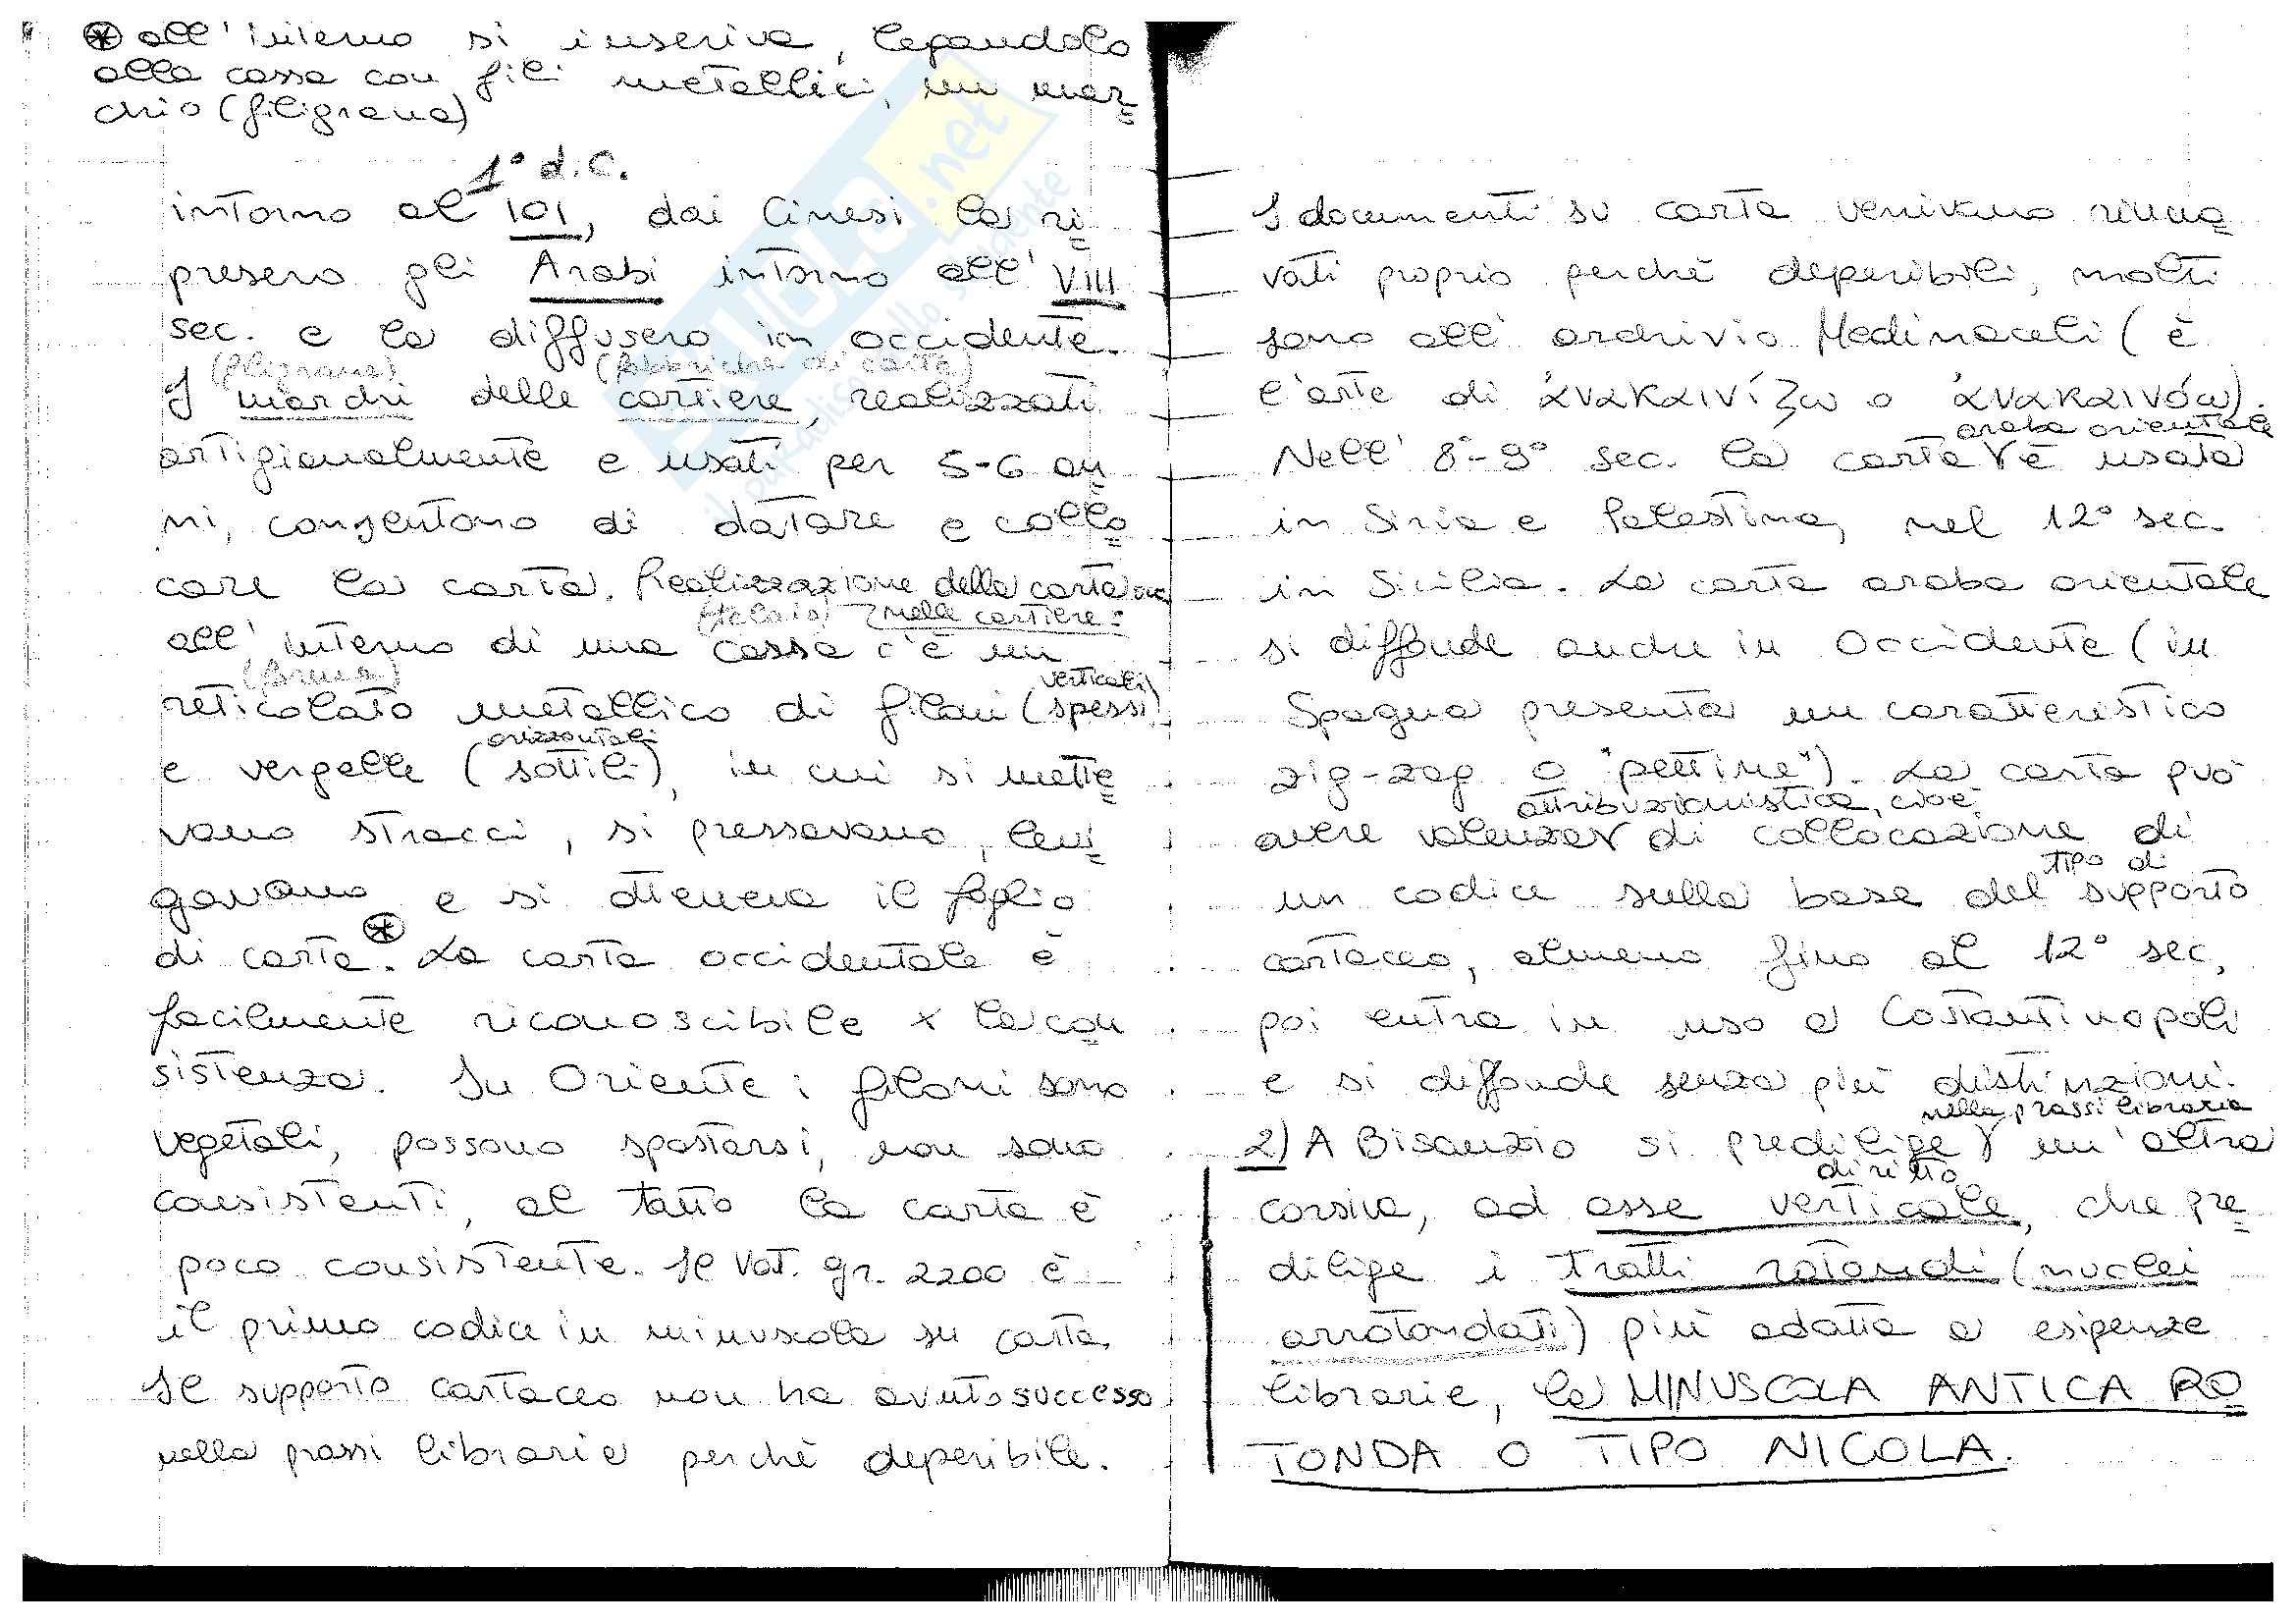 ⊛ all'interno si inseriva, legandolo
alla cassa con fili metallici, un mar=
chio (filigrana)
1° d.C.
intorno al 101, dai Cinesi la ri=
presero gli Arabi intorno all'VIII
sec. e la diffusero in occidente.
(filigrane) (fabbriche di carta)
I marchi delle cartiere, realizzati
artigianalmente e usati per 5-6 an=
ni, consentono di datare e collo=
care la carta. Realizzazione della carta occ.
(telaio) nelle cartiere:
all'interno di una cassa c'è un
(forma) verticali
reticolato metallico di filoni (spessi)
orizzontali
e vergelle (sottili), in cui si mette=
vano stracci, si pressavano, levi=
gavano e si otteneva il foglio
di carta.⊛ La carta occidentale è
facilmente riconoscibile x la con=
sistenza. In Oriente i filoni sono
vegetali, possono spostarsi, non sono
consistenti, al tatto la carta è
poco consistente. Il Vat. gr. 2200 è
il primo codice in minuscola su carta.
Il supporto cartaceo non ha avuto successo
nella prassi libraria perchè deperibile.
I documenti su carta venivano rinno=
vati proprio perchè deperibili, molti
sono all'archivio Medinaceli (è
l'arte di ἀνακαινίζω o ἀνακαινόω).
araba orientale
Nell'8°-9° sec. la carta è usata
in Siria e Palestina, nel 12° sec.
in Sicilia. La carta araba orientale
si diffonde anche in Occidente (in
Spagna presenta un caratteristico
zig-zag o "pettine"). La carta può
attribuzionistica, cioè
avere valenza di collocazione di
tipo di
un codice sulla base del supporto
cartaceo, almeno fino al 12° sec,
poi entra in uso a Costantinopoli
e si diffonde senza più distinzioni.
nella prassi libraria
2) A Bisanzio si predilige un'altra
diritto
corsiva, ad asse verticale, che pre=
dilige i tratti rotondi (nuclei
arrotondati) più adatta a esigenze
librarie, la MINUSCOLA ANTICA RO=
TONDA O TIPO NICOLA.